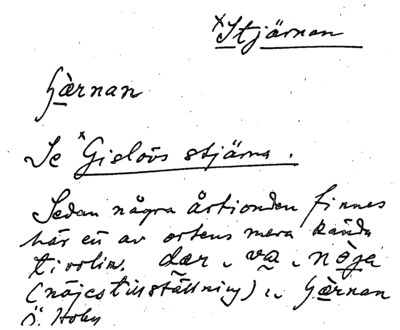 ×Stjärnan
Gærnan
Se ×Gislövs stjärna.
Sedan några årtionden finnes
här en av ortens mera kända
tivolin. dær, va, nöje
(nöjestillställning) i, Gærnan
Ö. Hoby